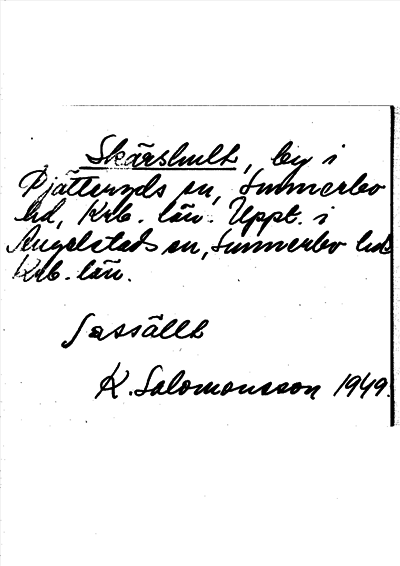 Skärshult, by i
Pjätteryds sn, Sunnerbo
hd, Krb. län. Uppt. i
Angelstads sn, Sunnerbo hd
Krb. län.
K. Salomonsson 1949.